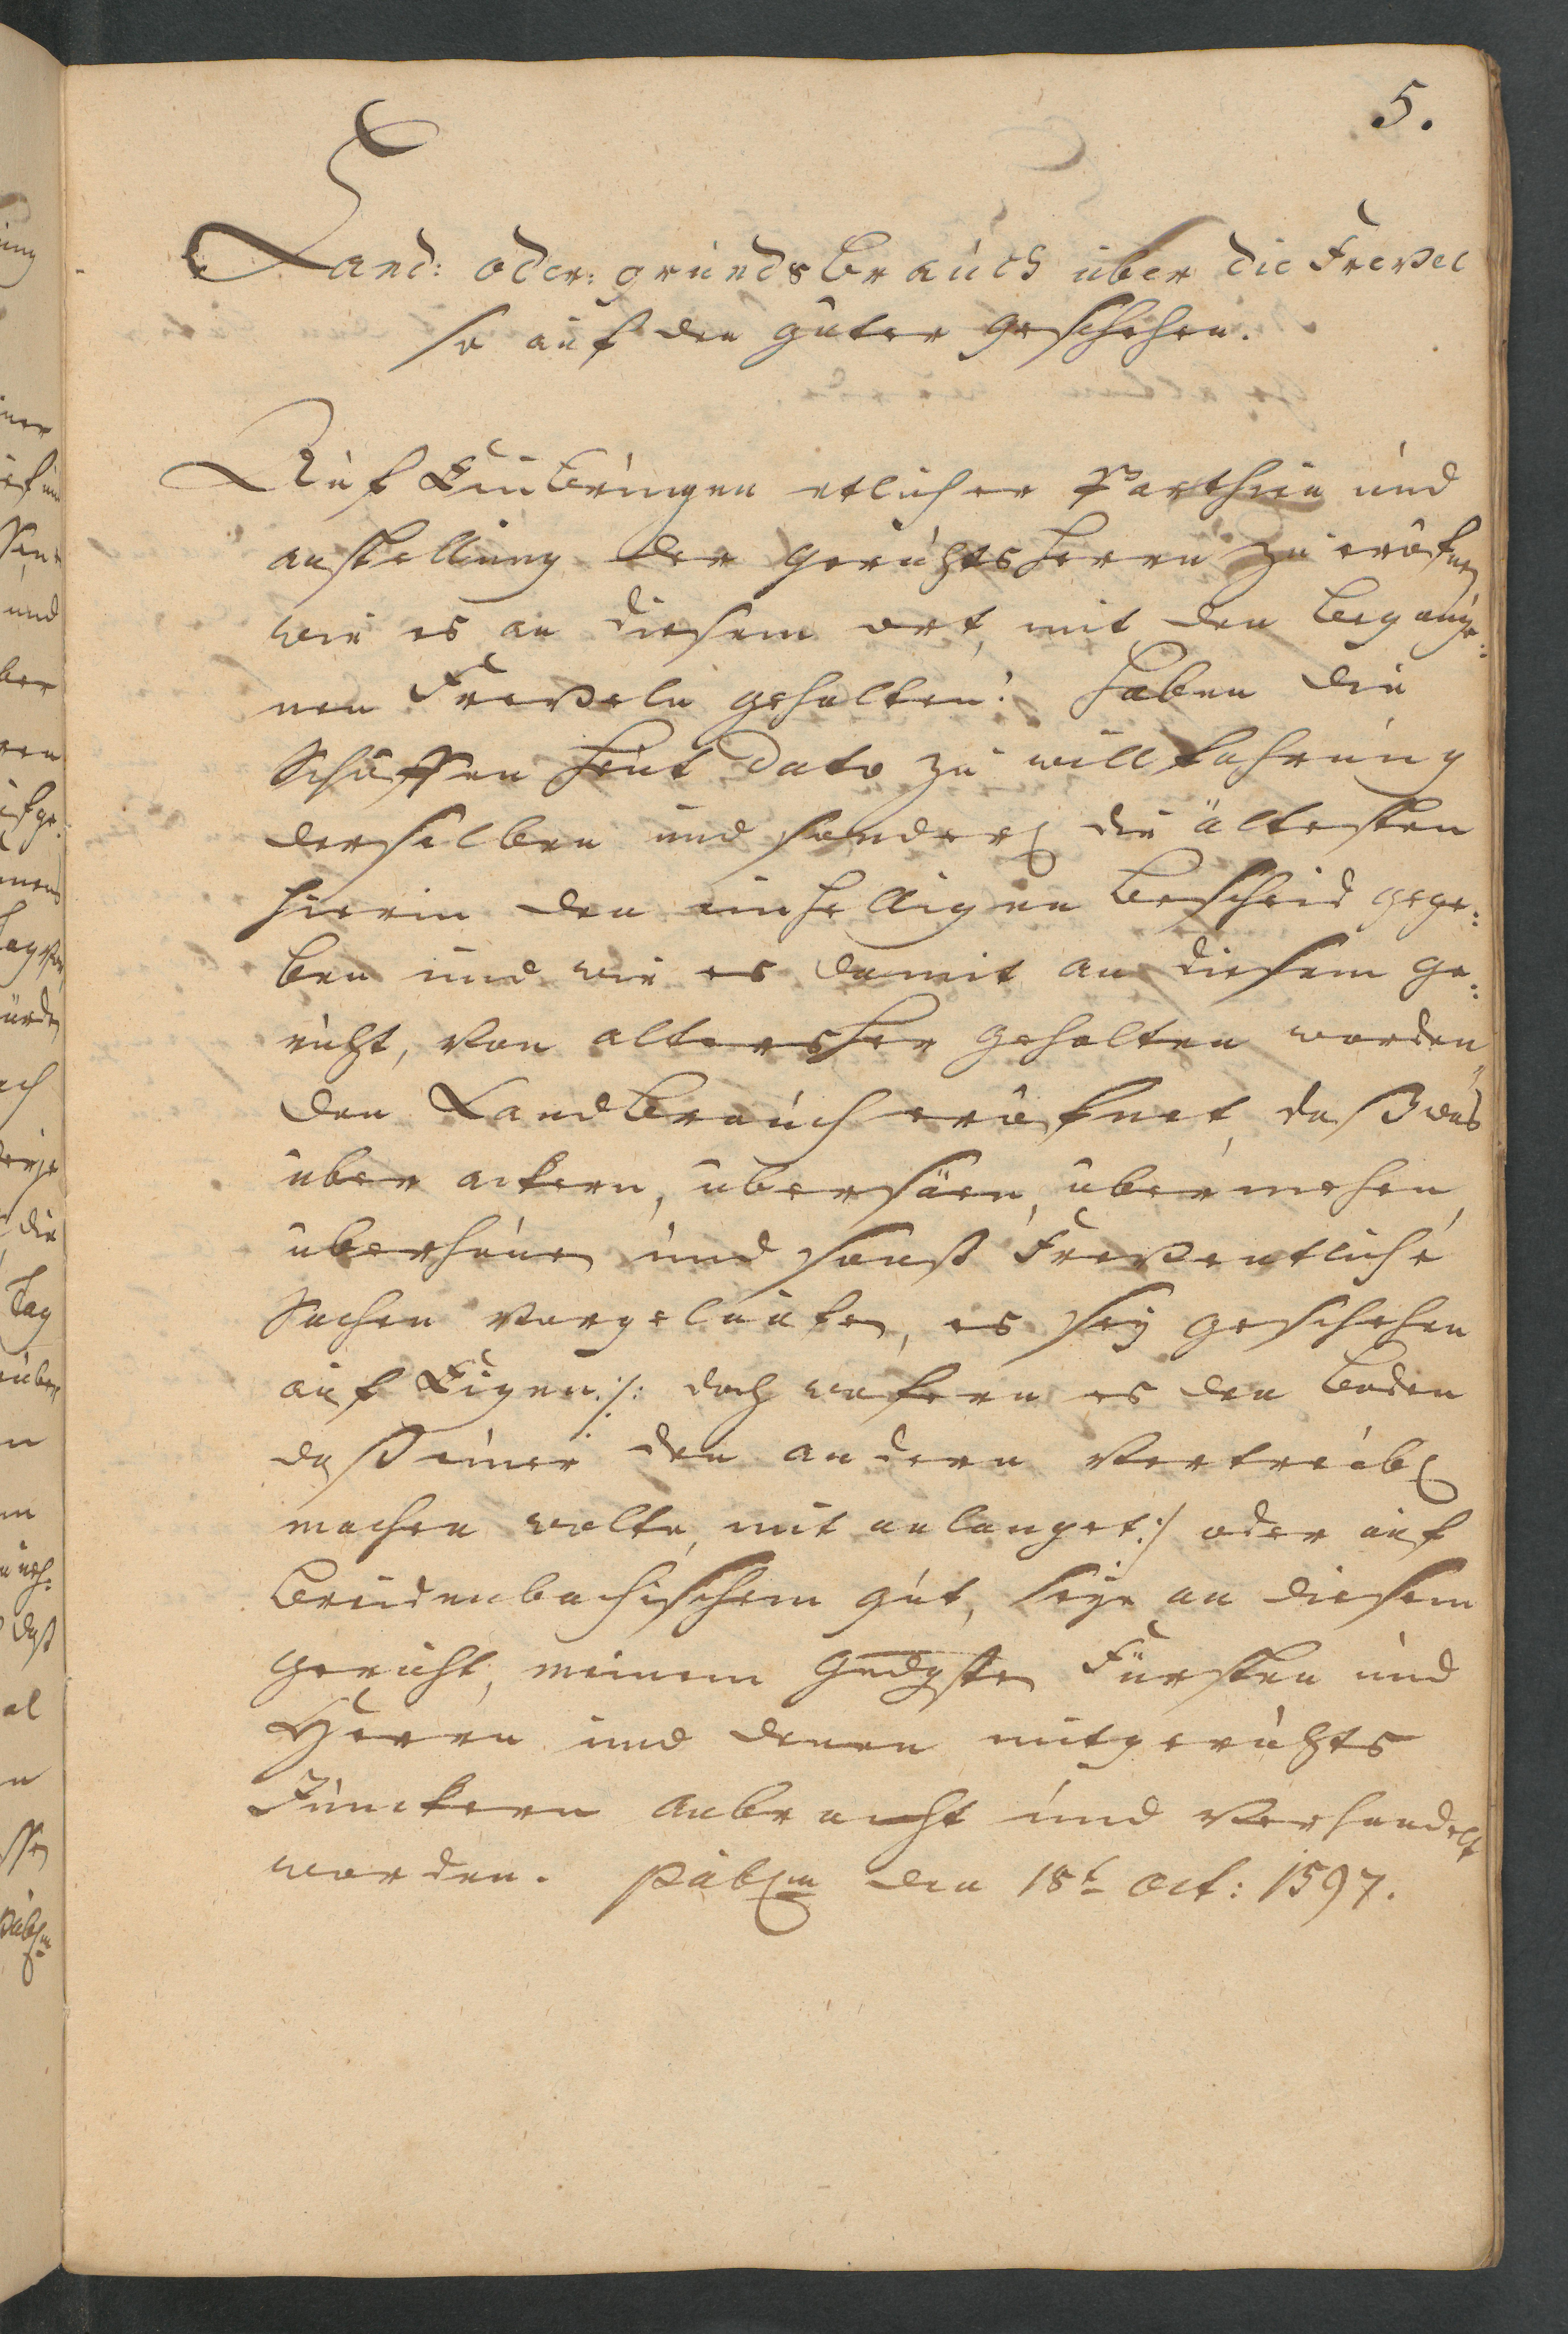 5.
Land: oder: grunds Brauch über die Frevel
so auf den güter geschehen.
Auf Einbringen etlicher Parthein und
anstellung der gerichtsherrn zu eröfnen
wie es an diesem ort, mit den begange:
nen Freveln gehalten: haben die
Schöffen heut dato zu willfahrung
derselben und sonderl. die ältesten
hierin den einhelligen bescheid gege:
ben und wie es damit an diesem ge:
richt, von altersher gehalten worden
den Landbrauch eröfnet, daß was
über ackern, übersäen, übermehen,
überhüten und sonst Freventliche
Sachen vorgelaufen, es seÿ geschehen
auf Eigen :/: doch wofern es den boden
daß einer den andern vertreibl.
machen wolte, mit anlanget :/ oder auf
breidenbachischem gut, seÿe an diesem
gericht, meinem gndgsten Fürsten und
Herrn und denen mitgerichts
Junckern anbracht und verhandelt
worden. publm den 18t Oct: 1597.